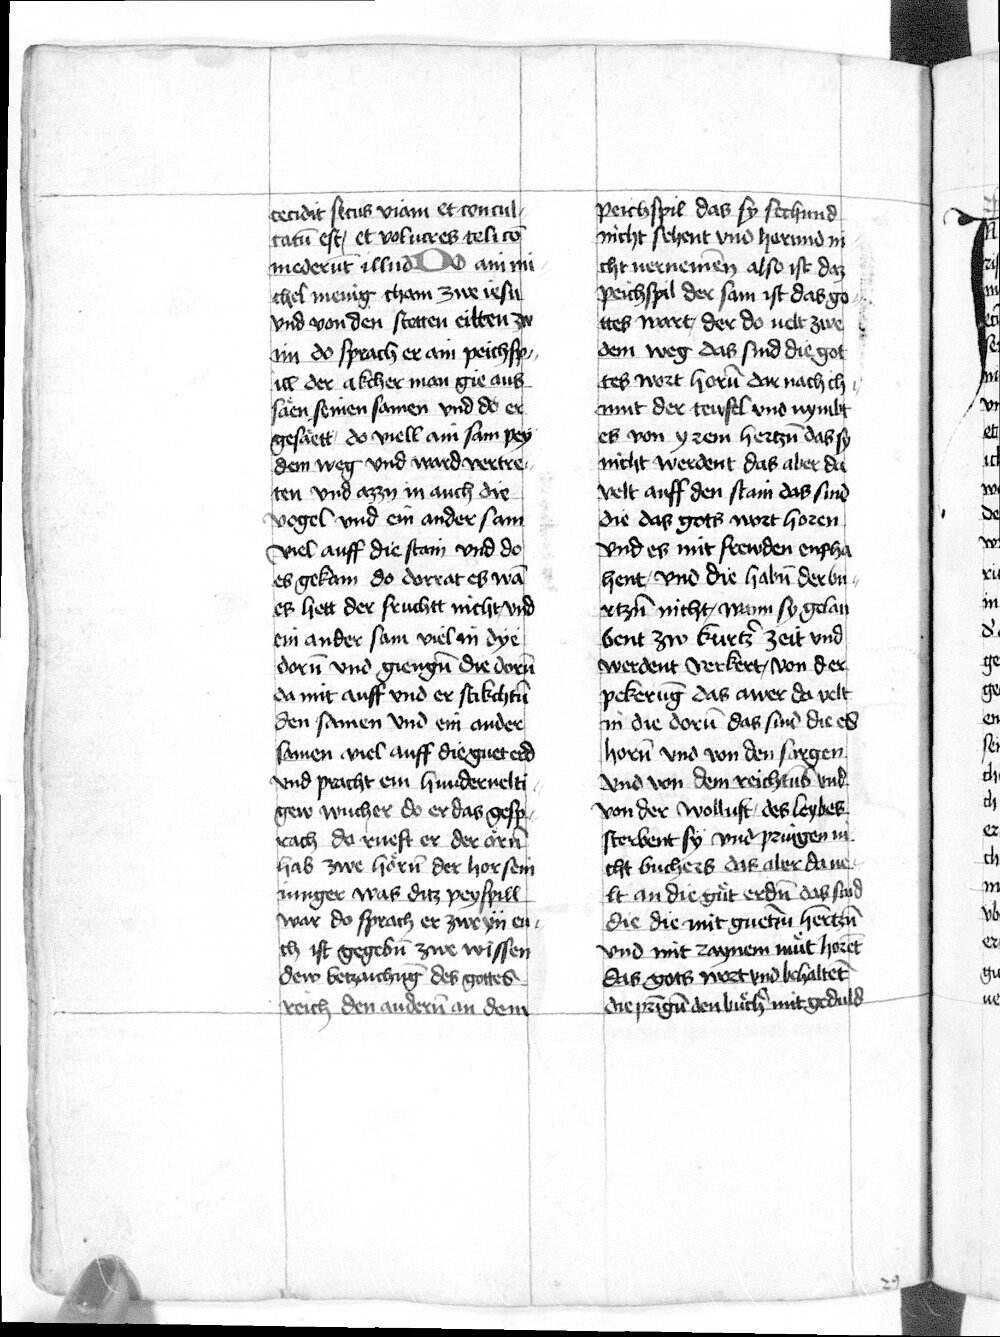 cecidit secus viam et concul-
catū est / et volucres celi cō
mederūt illud Do ain mi-
chel menig cham zwe iesu
vnd von den stetten eilten zw
im do sprach er ain peichsp-
ill der akcher man gie aus
säen seinen samen vnd do er
gesäett do viell ain sam pey
dem weg vnd ward vertre-
ten vnd azzn in auch die
vogel vnd ein ander sam
viel auff die stain vnd do
es gekam do dorrat es wā
es hett der fruchtt nicht / vnd
ein ander sam viel in dye
dorn̄ vnd giengn̄ die dorn̄
da mit auff vnd er stikchtn̄
den samen vnd ein ander
samen viel auff die guet erd
vnd pracht ein hundervelti-
gew wucher do er das gesp-
rach do rueft er der örn̄
hab zwe hörn̄ der hor sein
iunger was ditz peyspill
war do sprach er zwe yn eu-
ch ist gegebn̄ zwe wissen
dew betzaichnūg des gottes
reich den andern̄ an dem
peichspil das sy sechund
nicht sehent vnd horund ni
cht vernemen̄ also ist daz
peichspil der sam ist das go-
ttes wort / der do velt zwe
dem weg das sind die got
tes wort horn̄ dar nach ch
umt der teufel vnd nymbt
es von yrem hertzn̄ das sy
nicht werdent das aber da
velt auff den stain das sind
die das gots wort horen
vnd es mit frewden enpha
hent / vnd die habn̄ der bu-
rtzn̄ nicht / wann sy gelau
bent zw kurtzer zeit vnd
werdent verkert / von der
pekerūg das awer do velt
in die dorn̄ das sind die es
horn̄ vnd von den sorgen
vnd von dem reichtūb vnd
von der wollust / des leybes
sterbent sy vnd pringen ni
cht buchers das aber da ve-
lt an die güt erdn̄ das sind
die die mit guetn̄ hertzn̄
vnd mit raynem müt horēt
das gots wort vnd behaltēt
die prīgn̄ den büch mit geduld
29